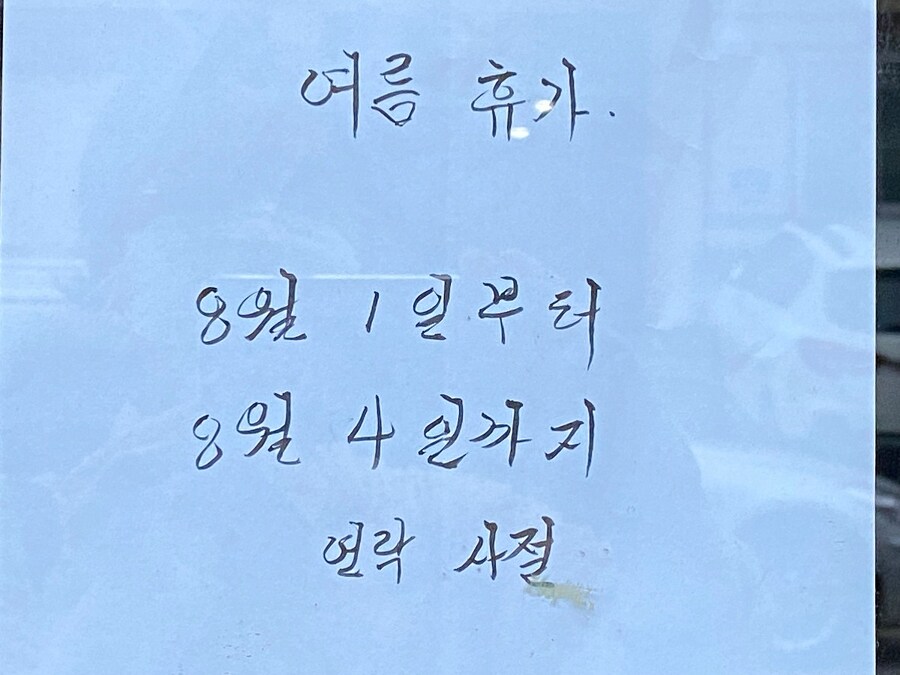 여름 휴가.
8월 1일부터
8월 4일까지
연락 사절